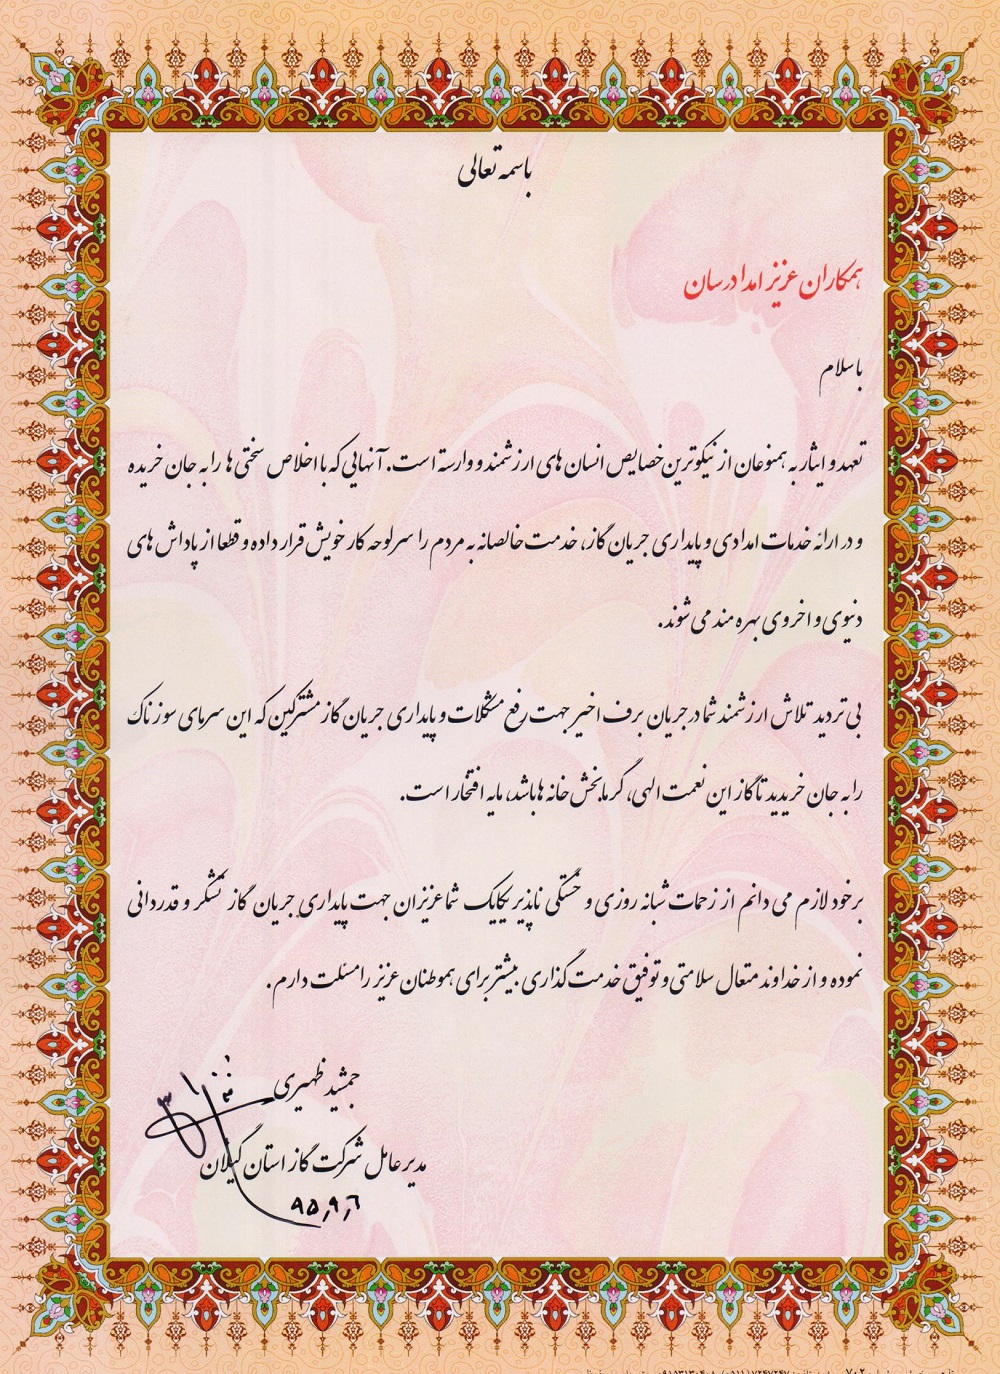 باسمه تعالی
همکاران عزیز امدادرسان
با سلام
تعهد و ایثار به همنوعان از نیکوترین خصایص انسان های ارزشمند و وارسته است. آنهایی که با اخلاص سختی ها را به جان خریده
و در ارائه خدمات امدادی و پایداری جریان گاز، خدمت خالصانه به مردم را سرلوحه کار خویش قرار داده و قطعا از پاداش های
دنیوی و اخروی بهره مند می شوند.
بی تردید تلاش ارزشمند شما در جریان برف اخیر جهت رفع مشکلات و پایداری جریان گاز مشترکین که این سرمای سوزناک
را به جان خریدید تا گاز این نعمت الهی، گرمابخش خانه ها باشد، مایه افتخار است.
بر خود لازم می دانم از زحمات شبانه روزی و خستگی ناپذیر یکایک شما عزیزان جهت پایداری جریان گاز تشکر و قدردانی
نموده و از خداوند متعال سلامتی و توفیق خدمت گذاری بیشتر برای هموطنان عزیز را مسئلت دارم.
جمشید ظهیری
مدیر عامل شرکت گاز استان گیلان
۹۵٫۹٫۶